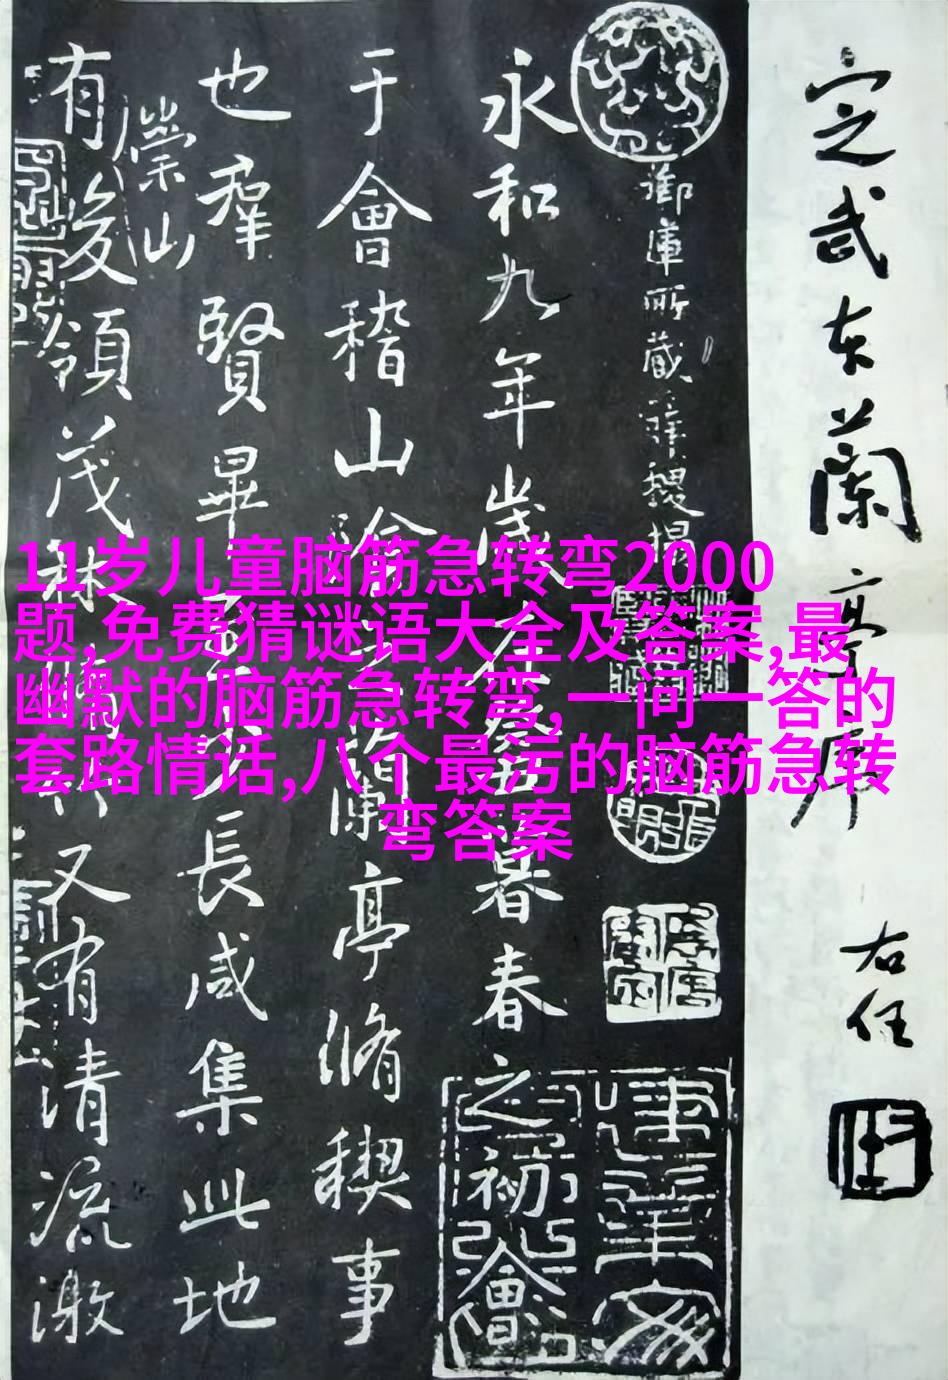 定武本蘭亭序
右任
御庫所藏薛稷搨
永和九年歲在癸丑暮春之初會
于會稽山陰之蘭亭脩稧事
也羣賢畢至少長咸集此地
有崇山峻領茂林脩竹又有清流激
11岁儿童脑筋急转弯2000
题,免费猜谜语大全及答案,最
幽默的脑筋急转弯,一问一答的
套路情话,八个最污的脑筋急转
弯答案